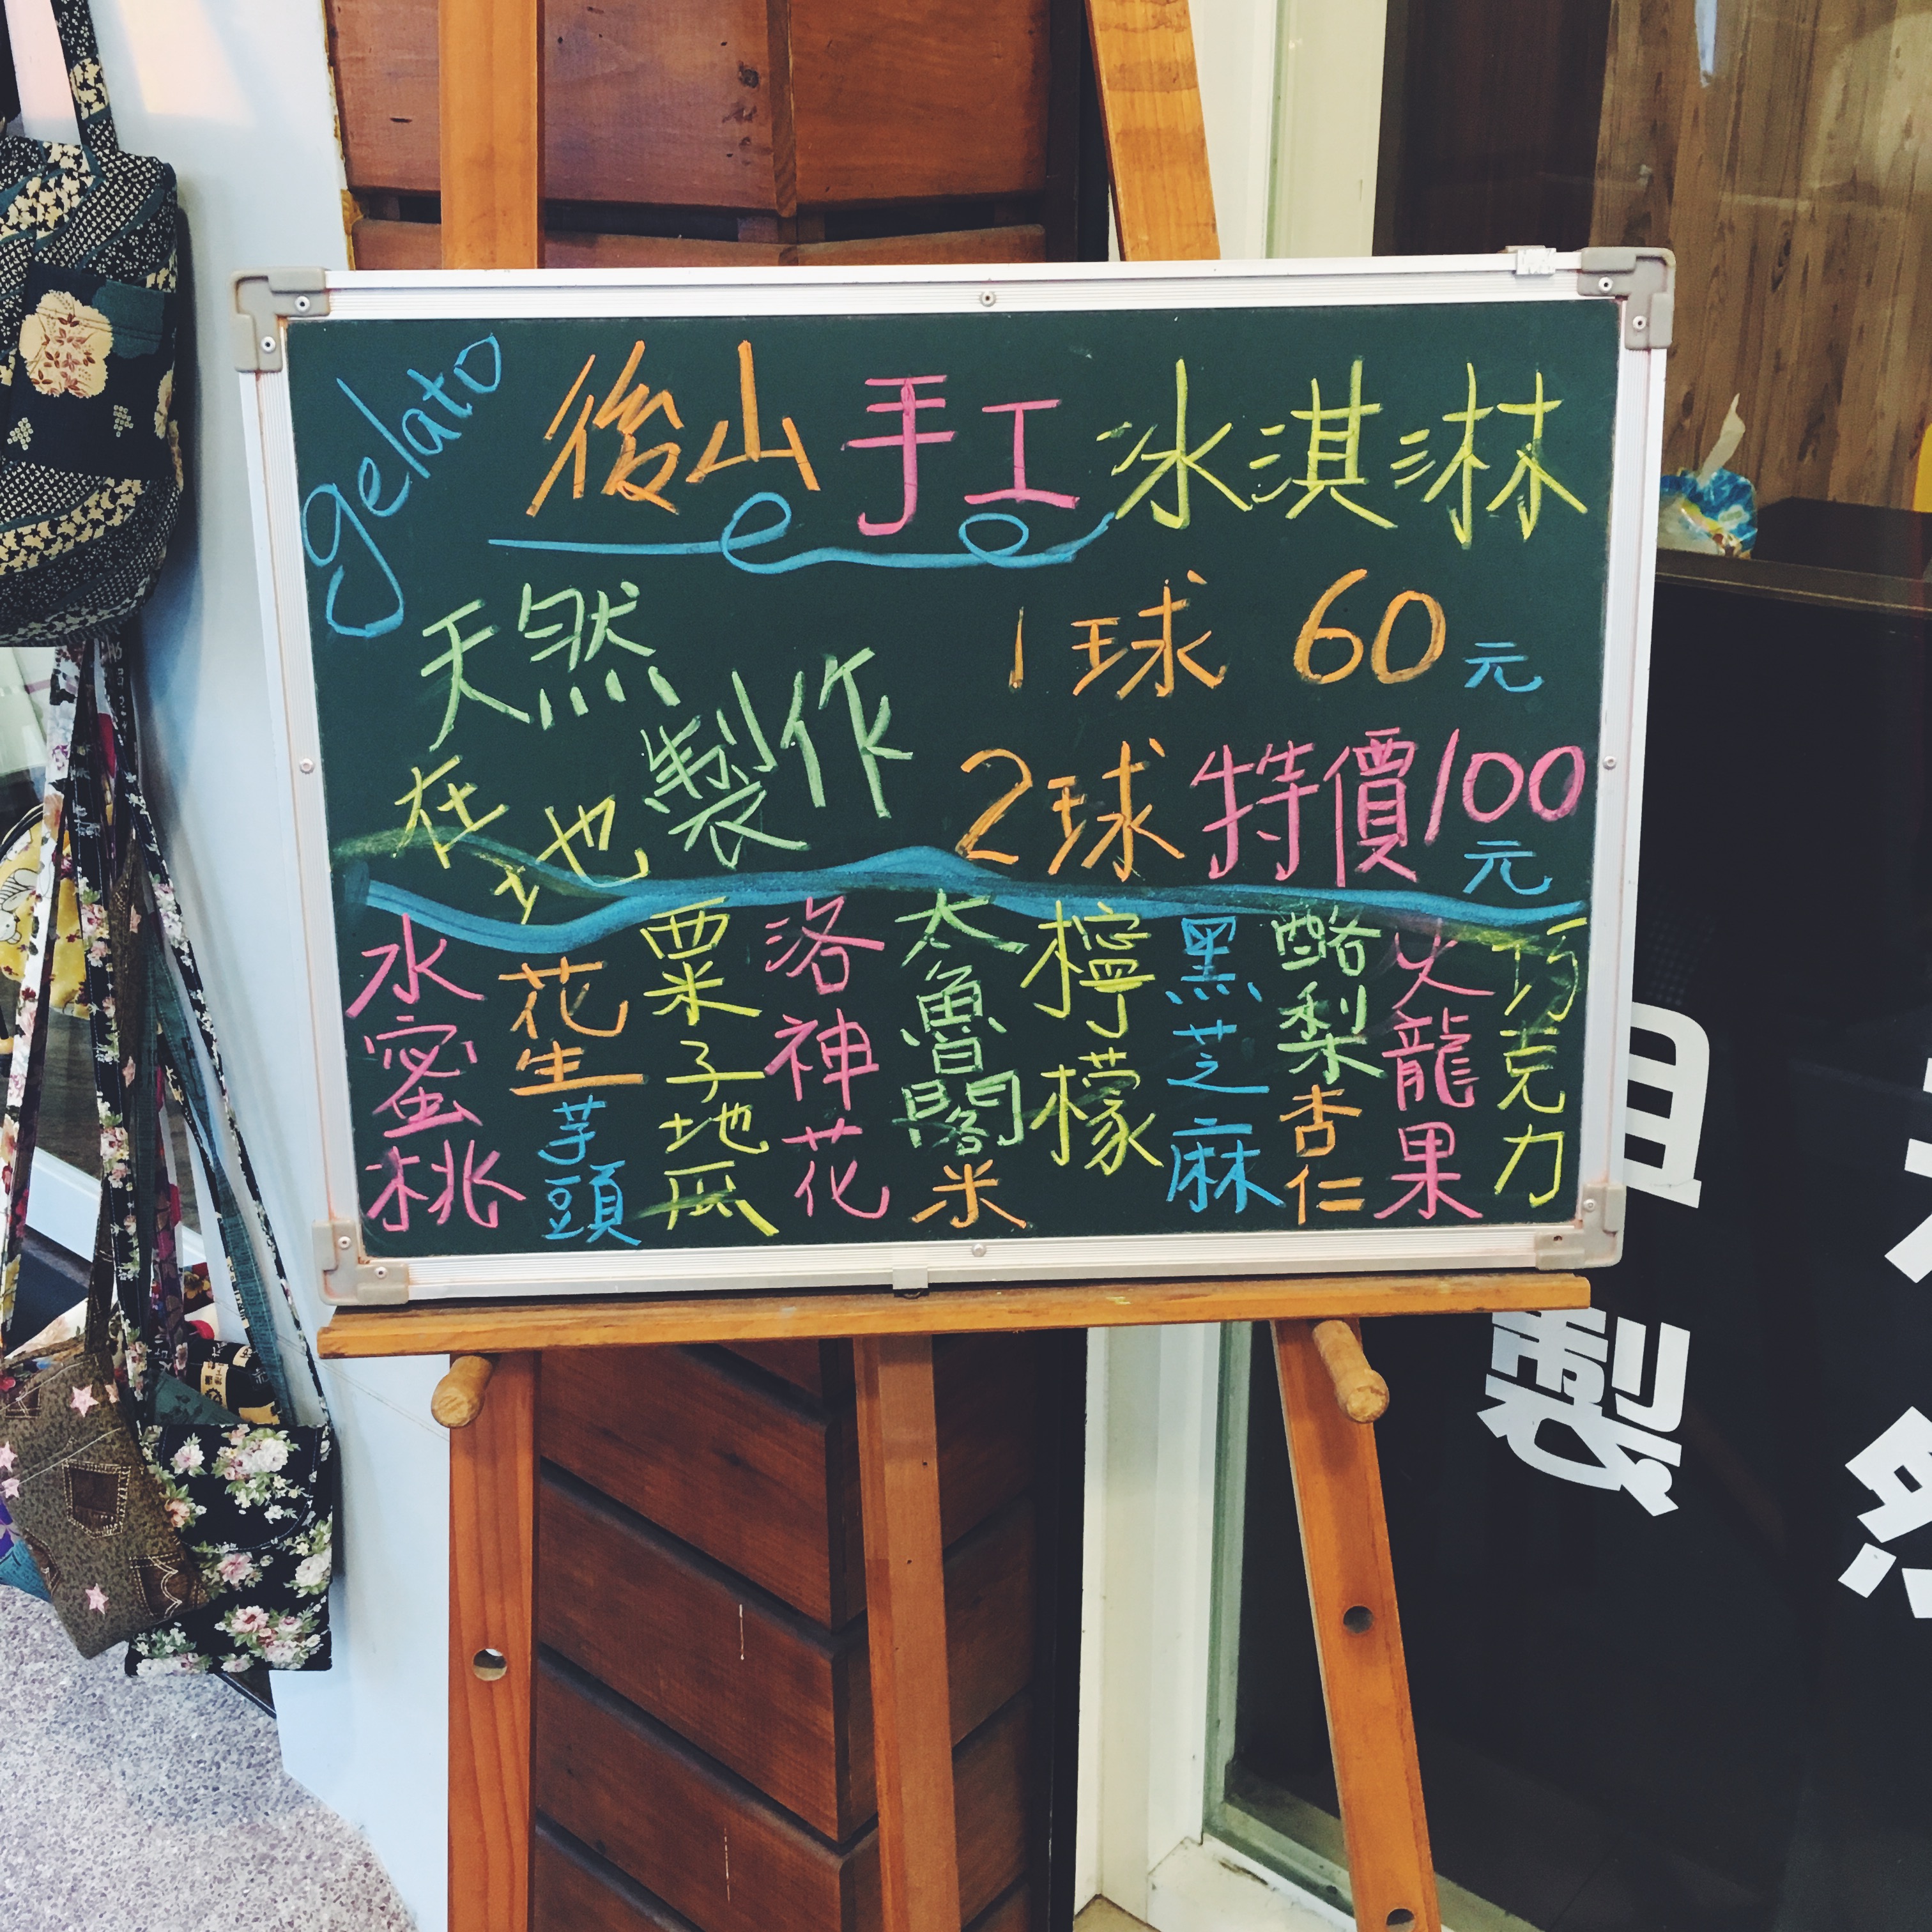 gelato
後山手工冰淇淋
天然製作
在地
1球 60元
2球 特價100元
水蜜桃
花生
芋頭
粟子
地瓜
洛神花
太魯閣米
檸檬
黑芝麻
酪梨
杏仁
火龍果
巧克力
自製